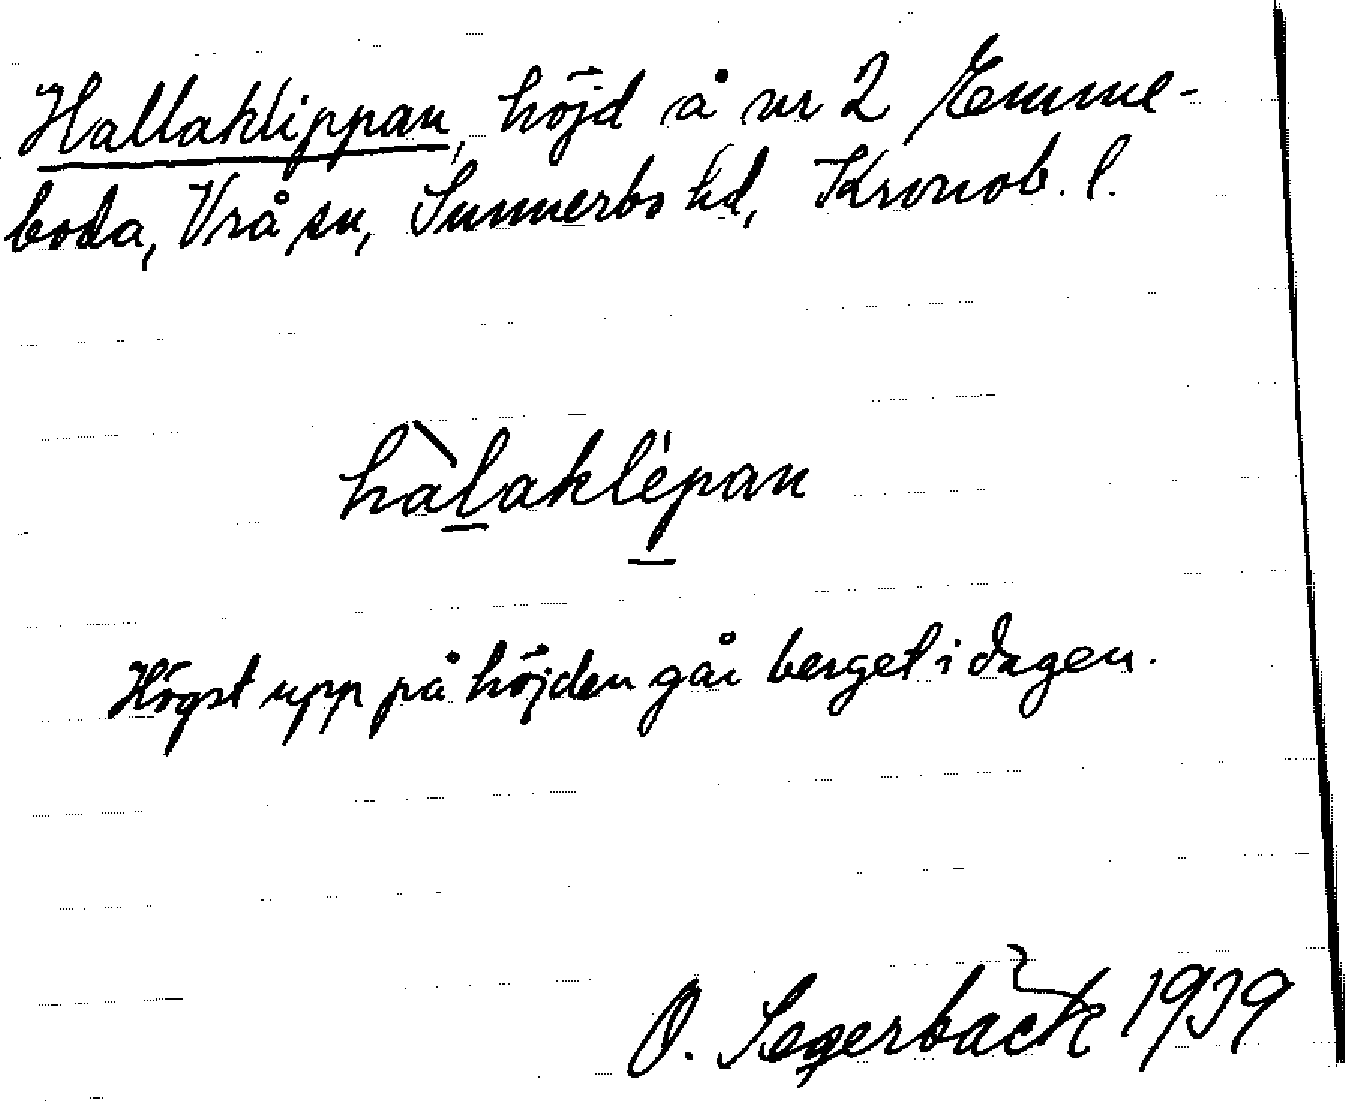 Hallaklippan, höjd å nr 2 Emme-
boda, Vrå sn, Sunnerbo hd, Kronob. l.
hàlaklépan
Högst upp på höjden går berget i dagen.
O. Segerbäck 1939